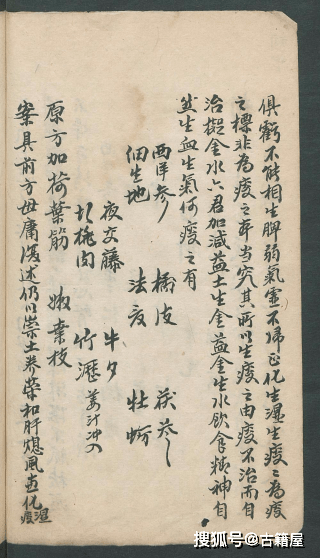 俱虧不能相生脾弱氣虛不歸正化生濕生痰之為痰
之標非為痰之本當究其所以生痰之由痰不治而自
治擬金水六君加減益土生金益金生水飲食精神自
然生血生氣何痰之有
西洋參 橘皮 茯苓
細生地 法夏 牡蠣
夜交藤 牛夕
胡桃肉 竹瀝 姜汁沖入
原方加荷葉筋 嫩桑枝
案具前方毋庸復述仍以崇土養榮和肝熄風直化濕痰
搜狐号@古籍屋